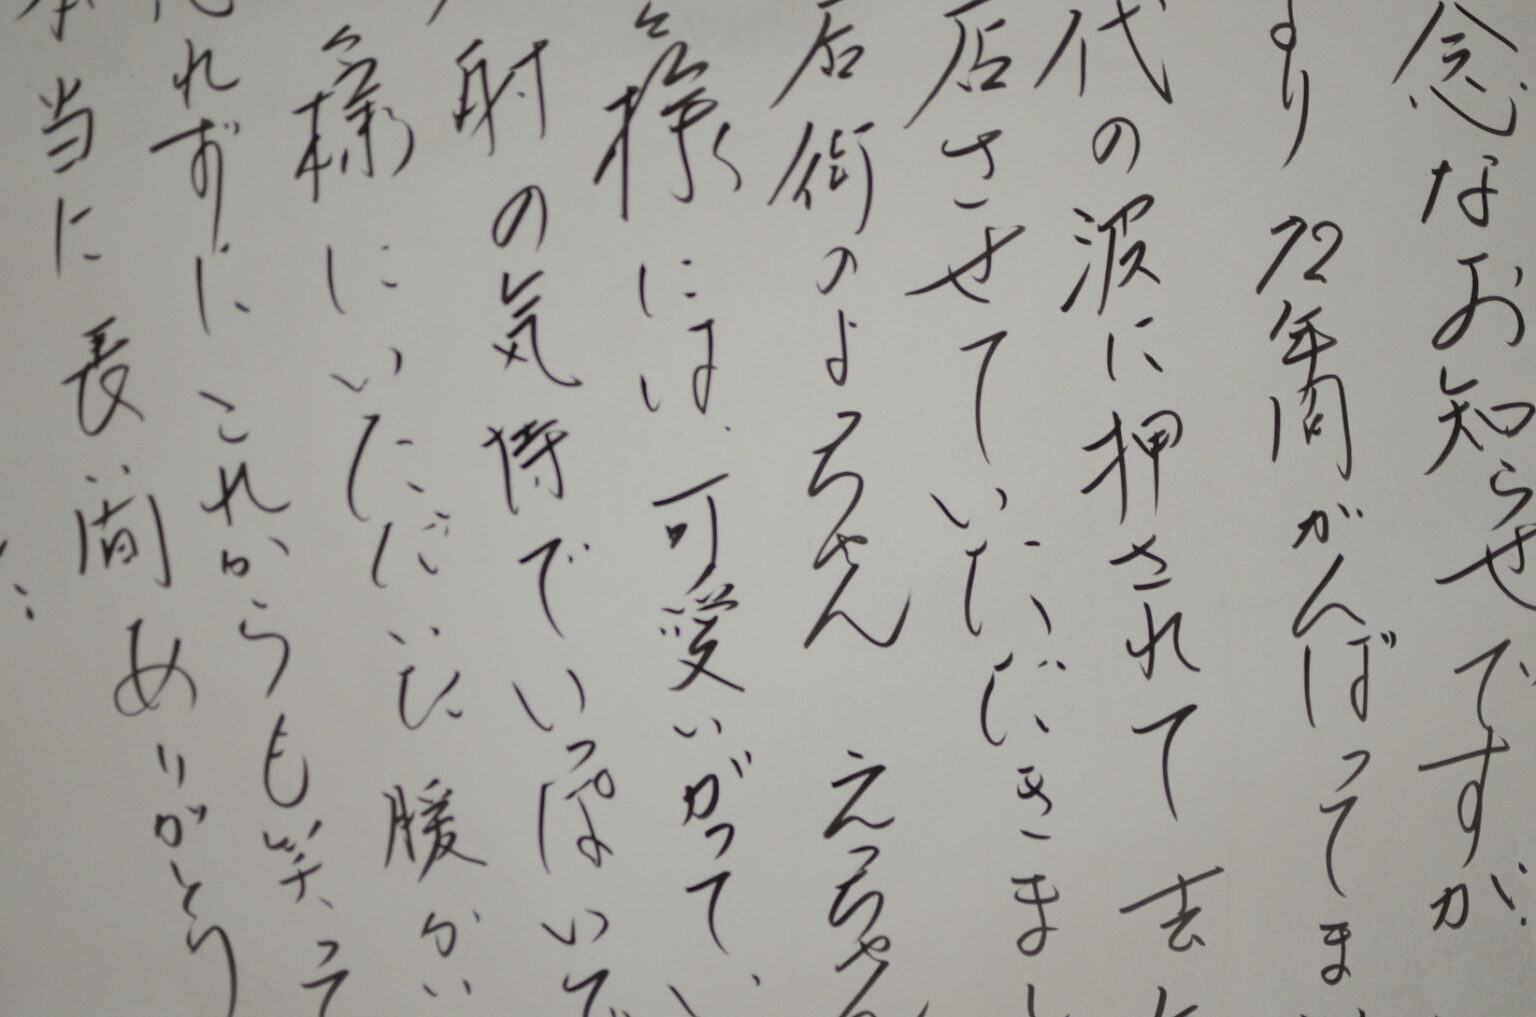 念なお知らせですが
すり 72年間がんばってま
代の波に押されて 去
店させていただきまし
店街のよっちゃん えっちゃん
客様には、可愛いがってい
謝の気持でいっぱいで
客様にいただいた暖かい
れずに これからも笑って
本当に長い間ありがとう